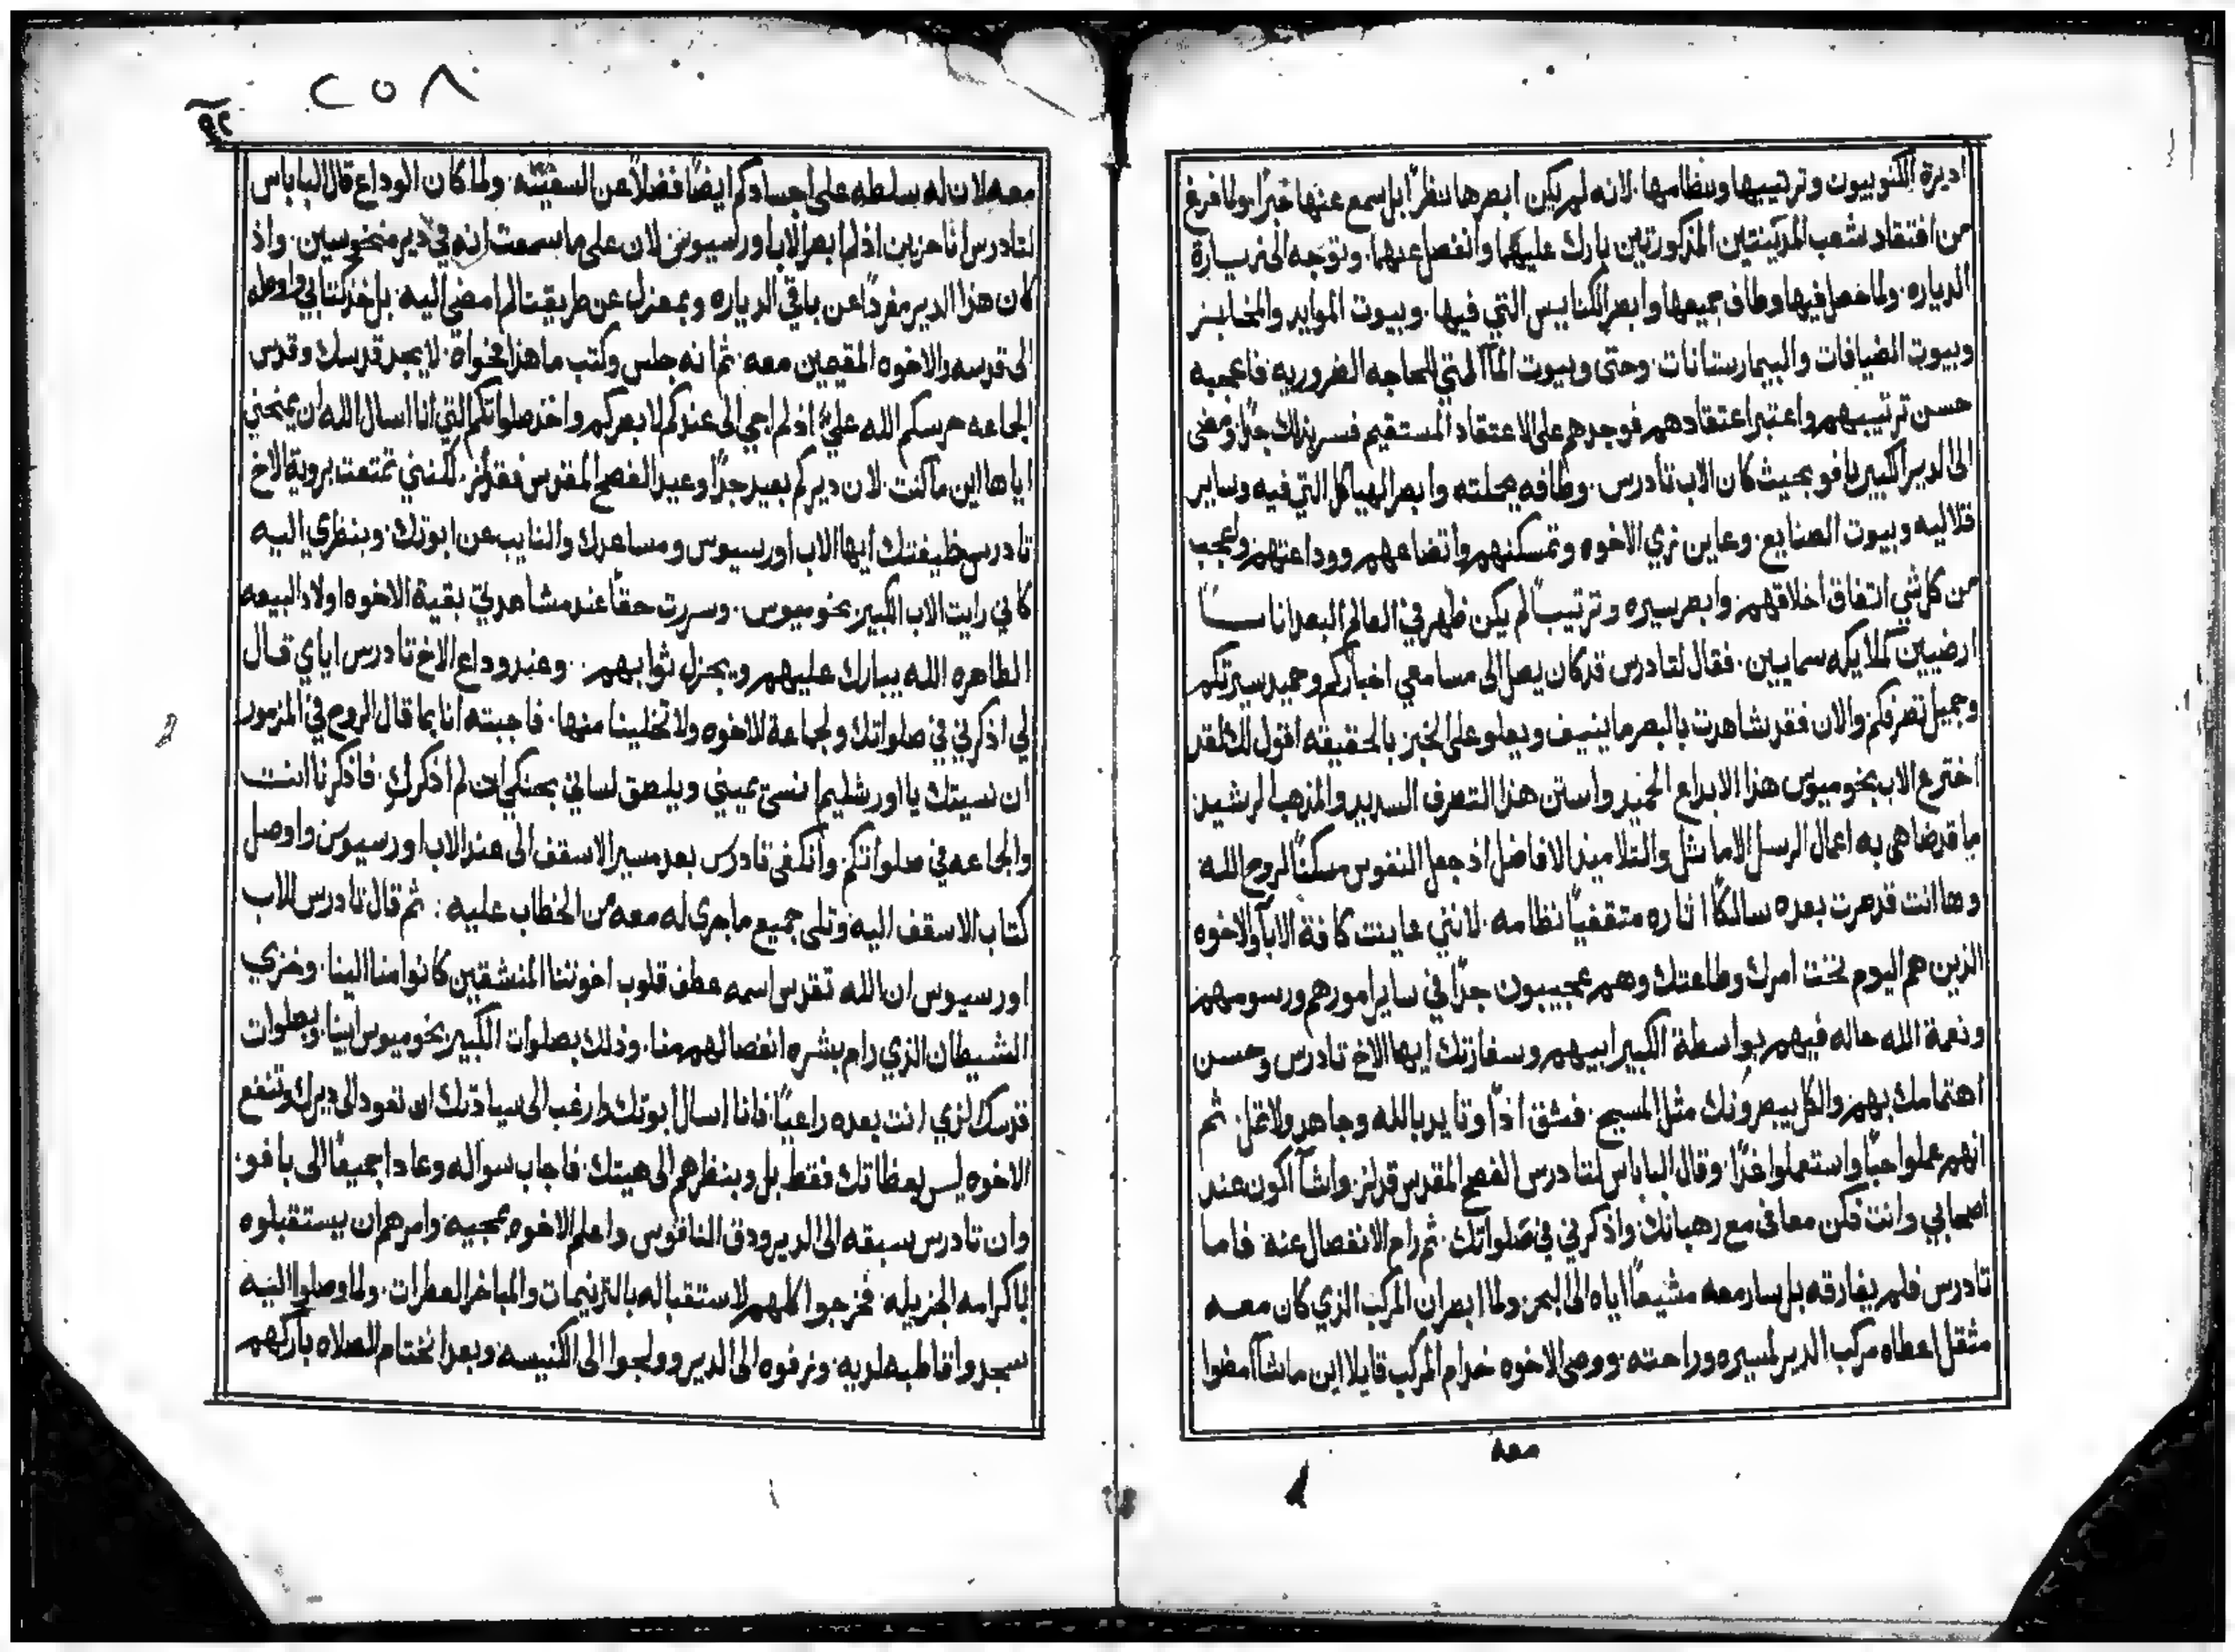 اديرة الكنوبيون وترتيبها ونظامها. لانه لم يكن ابصرها نظراً بل سمع عنها خبراً ولما فرغ
من افتقاد شعب المدينتين المذكورتين بارك عليهما وانفصل عنهما. وتوجه الى زيارة
الدياره. ولما حصل فيها وطاف جميعها وابصر الكنايس التي فيها. وبيوت الموايد والمخابز
وبيوت الضيافات والبيمارستانات. وحتى وبيوت المآ التي للحاجه الضروريه فاعجبه
حسن ترتيبهم واعتبر اعتقادهم فوجدهم على الاعتقاد المستقيم فسر بذلك جداً ومضى
الى الدير الكبير بافو بحيث كان الاب تادرس. وطاف به بجملته وابصر الهياكل التي فيه وساير
قلاليه وبيوت الصنايع. وعاين زي الاخوه وتمسكنهم واتضاعهم ووداعتهم وعجب
من كل شي اتفاق اخلاقهم وابصر سيره وترتيباً لم يكن ظهر في العالم البعد اناسـاً
ارضيين كملايكه سماييين. فقال لتادرس قد كان يصل الى مسامعي اخباركم وحميد سيرتكم
وجميل تصرفكم والان فقد شاهدت بالبصر ما ينيف ويعلو على الخبر بالحقيقه اقول لك لقد
اخترع الاب بخوميوس هذا الابداع الحميد واستن هذا التصرف السديد والمذهب الرشيد
ما قد ضاهى به اعمال الرسل الاماثل والتلاميذ الافاضل اذ جعل النفوس مسكناً لروح الله
وها انت قد صرت بعده سالكاً اثاره متقفياً نظامه. لانني عاينت كافة الابآ والاخوه
الذين هم اليوم تحت امرك وطاعتك وهم عجيبون جداً في ساير امورهم ورسومهم
ونعمة الله حاله فيهم بواسطة الكبير ابيهم وسفارتك ايها الاخ تادرس وحسن
اهتمامك بهم والكل يبصرونك مثل المسيح. فشق اذاً وتايد بالله وجاهد ولا تمل. ثم
انهم عملوا حباً واستعملوا غداً. وقال الباباس لتادرس الفصح المقدس قد لز. وانشآ اكون عند
اصحابي وانت فكن معافى مع رهبانك واذكرني في صلواتك. ثم رام الانفصال عنه فاما
تادرس فلم يفارقه بل سار معه مشيعاً اياه الى البحر ولما ابصر ان المركب الذي كان معه
مثقل اعطاه مركب الدير لمسيره وراحته. ووصى الاخوه خدام المركب قايلا اين ما شآ امضوا
معه
٢٥٨
٩٢
معه لان له سلطه على اجسادكم ايضاً فضلاً عن السفينه. ولما كان الوداع قال الباباس
لتادرس انا حزين اذ لم ابصر الاب اورسيوس لان على ما سمعت انه في دير منخوسين. واذ
كان هذا الدير مفرداً عن باقي الدياره وبمعزل عن طريقي لم امضي اليه. بل خذ كتابي واوصله
الى قدسه والاخوه المقيمين معه. ثم انه جلس وكتب ما هذا فحواه. لا يجد قدسك وقدس
الجماعه حرسكم الله عليَّ اذ لم اجي الى عندكم لابصركم واخذ صلواتكم التي انا اسال الله ان يمنحني
اياها اين ما كنت. لان ديركم بعيد جداً وعيد الفصح المقدس فقد لز. لكنني تمتعت بروية الاخ
تادرس خليفتك ايها الاب اورسيوس ومساعدك والنايب عن ابوتك. وبنظري اليه
كاني رايت الاب الكبير بخوميوس. وسررت حقاً عند مشاهدتي بقية الاخوه اولاد البيعه
الطاهره الله يبارك عليهم ويجزل ثوابهم. وعند وداع الاخ تادرس اياي قال
لي اذكرني في صلواتك ولجماعة الاخوه ولا تخلينا منها. فاجبته انا بما قال الروح في المزمور
ان نسيتك يا اورشليم انسى يميني ويلصق لساني بحنكي ان لم اذكرك. فاذكرنا انت
والجماعه في صلواتكم. وانكفى تادرس بعد مسير الاسقف الى عند الاب اورسيوس واوصل
كتاب الاسقف اليه وتلى جميع ما جرى له معه من الخطاب عليه: ثم قال تادرس للاب
اورسيوس ان الله تقدس اسمه عطف قلوب اخوتنا المنشقين كانوا منا الينا. وخزي
الشيطان الذي رام بشره انفصالهم منا. وذلك بصلوات الكبير بخوميوس ابينا. وبصلوات
قدسك الذي انت بعده راعياً. فانا اسال ابوتك وارغب الى سيادتك ان تعود الى ديرك وتنفع
الاخوه ليس بعظاتك فقط بل وبنظرهم الى هيتك. فاجاب سواله وعادا جميعاً الى بافو.
وان تادرس سبقه الى الدير ودق الناقوس واعلم الاخوه بمجيه وامرهم ان يستقبلوه
باكرامه الجزيله. فخرجوا كلهم لاستقباله بالترنيمات والمباخر العطرات. ولما وصلوا اليه
سجدوا قاطبه لديه. وزفوه الى الدير وولجوا الى الكنيسه. وبعد اختتام الصلاه باركهم